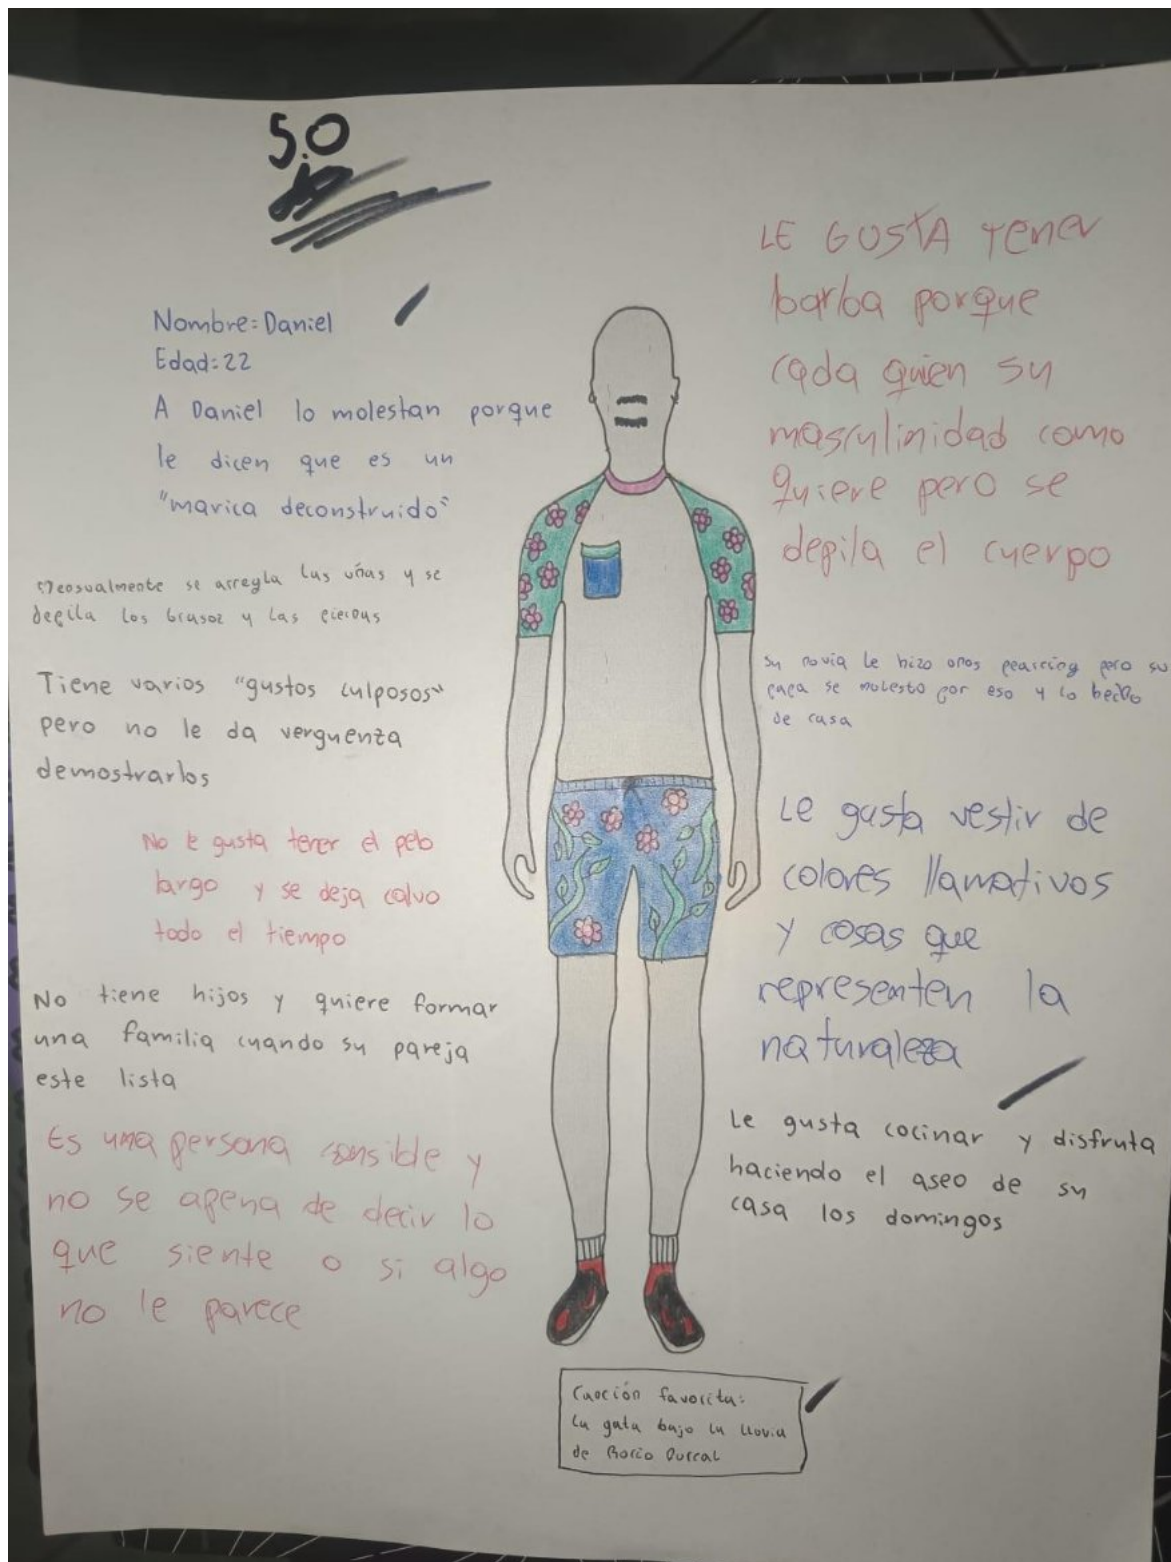 5.0
Nombre=Daniel
Edad=22
A Daniel lo molestan porque
le dicen que es un
"marica deconstruido"
Mensualmente se arregla las uñas y se
depila los brasoz y las piernas
Tiene varios "gustos culposos"
pero no le da verguenza
demostrarlos
No le gusta tener el pelo
largo y se deja calvo
todo el tiempo
No tiene hijos y quiere formar
una familia cuando su pareja
este lista
Es una persona sensible y
no se apena de decir lo
que siente o si algo
no le parece
LE GUSTA tener
barba porque
cada quien su
masculinidad como
quiere pero se
depila el cuerpo
Su novia le hizo unos pearcing pero su
papa se molesto por eso y lo hecho
de casa
Le gusta vestir de
colores llamativos
y cosas que
representen la
naturaleza
Le gusta cocinar y disfruta
haciendo el aseo de su
casa los domingos
Canción favorita:
La gata bajo la lluvia
de Rocio Durcal